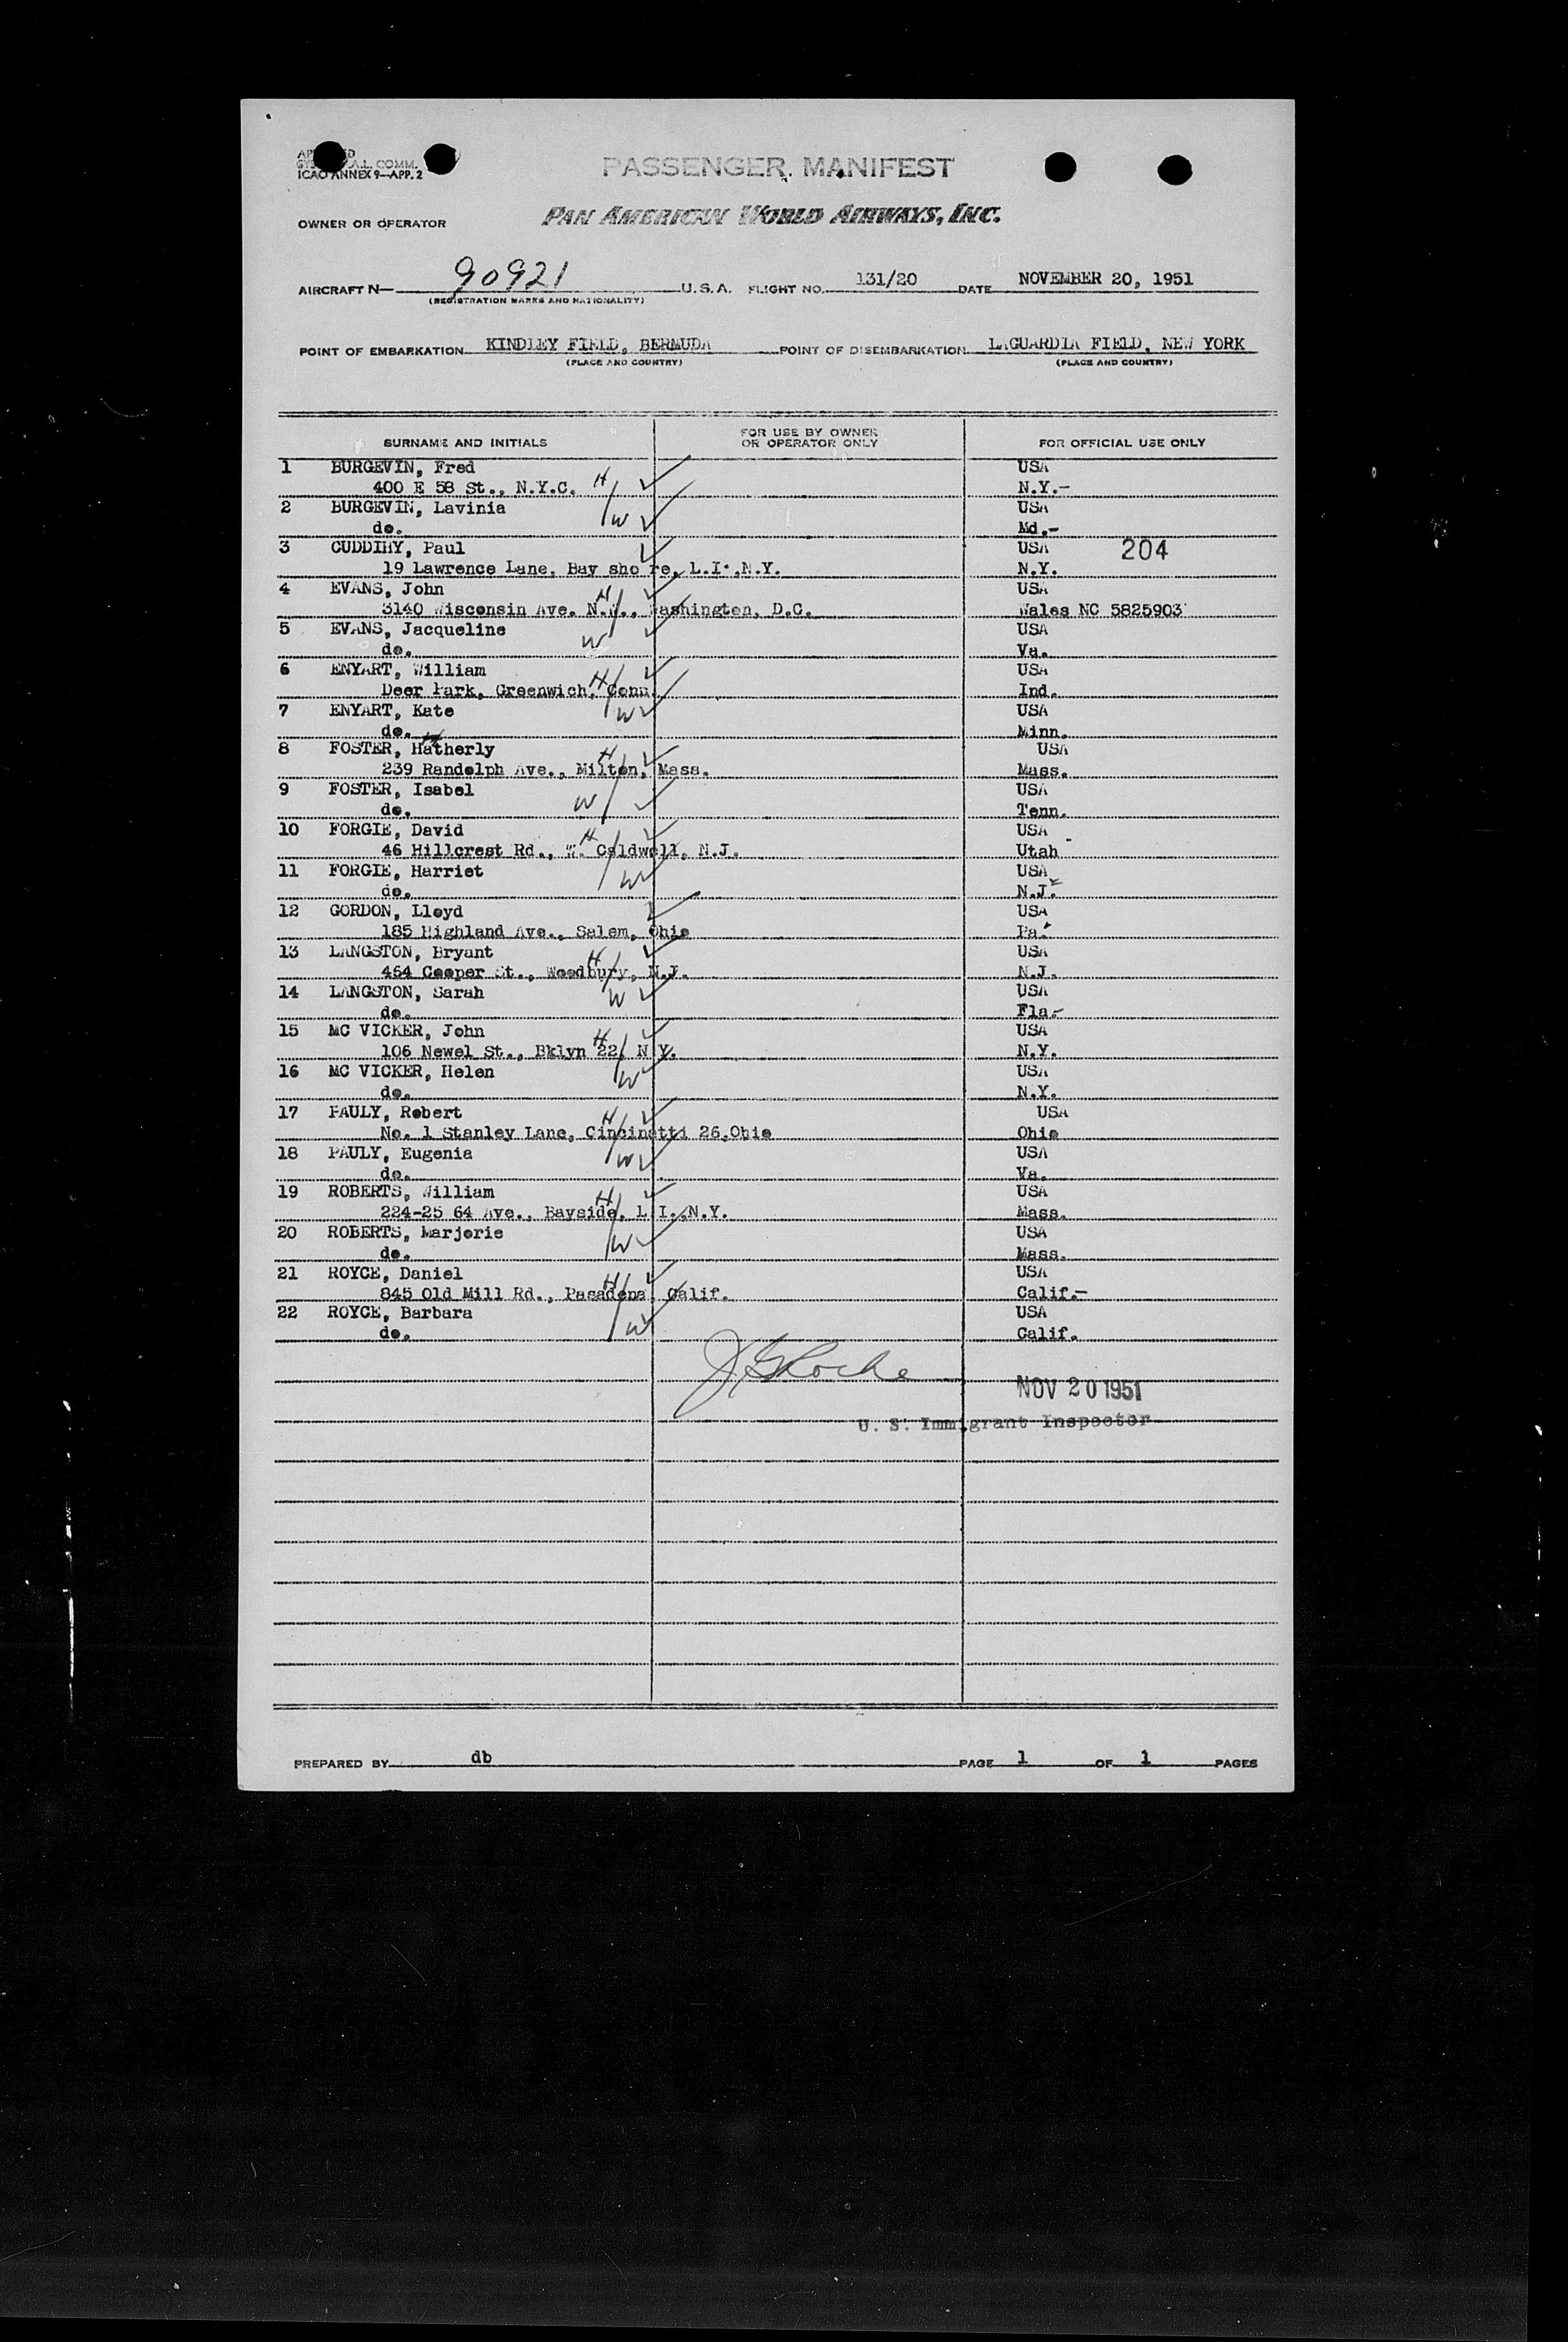 ICAO ANNEX 9—APP. 2
PASSENGER MANIFEST
OWNER OR OPERATOR PAN AMERICAN WORLD AIRWAYS, INC.
AIRCRAFT N— 90921 U.S.A. FLIGHT NO. 131/20 DATE NOVEMBER 20, 1951
(REGISTRATION MARKS AND NATIONALITY)
POINT OF EMBARKATION KINDLEY FIELD, BERMUDA POINT OF DISEMBARKATION LAGUARDIA FIELD, NEW YORK
(PLACE AND COUNTRY) (PLACE AND COUNTRY)
SURNAME AND INITIALS FOR USE BY OWNER OR OPERATOR ONLY FOR OFFICIAL USE ONLY
1 BURGEVIN, Fred USA
400 E 58 St., N.Y.C. H ✓ N.Y.-
2 BURGEVIN, Lavinia USA
do. W ✓ Md.-
3 CUDDIHY, Paul ✓ USA 204
19 Lawrence Lane, Bay sho re, L.I.,N.Y. N.Y.
4 EVANS, John H ✓ USA
3140 Wisconsin Ave. N.W., Washington, D.C. Wales NC 5825903
5 EVANS, Jacqueline W ✓ USA
do. Va.
6 ENYART, William H ✓ USA
Deer Park, Greenwich, Conn. Ind.
7 ENYART, Kate W ✓ USA
do. Minn.
8 FOSTER, Hatherly H ✓ USA
239 Randolph Ave., Milton, Mass. Mass.
9 FOSTER, Isabel W ✓ USA
do. Tenn.
10 FORGIE, David H ✓ USA
46 Hillcrest Rd., W. Caldwell, N.J. Utah
11 FORGIE, Harriet W ✓ USA
do. N.J.
12 GORDON, Lloyd ✓ USA
185 Highland Ave., Salem, Ohio Pa.
13 LANGSTON, Bryant H ✓ USA
464 Cooper St., Woodbury, N.J. N.J.
14 LANGSTON, Sarah W ✓ USA
do. Fla.-
15 MC VICKER, John H ✓ USA
106 Newel St., Bklyn 22, N.Y. N.Y.
16 MC VICKER, Helen W ✓ USA
do. N.Y.
17 PAULY, Robert H ✓ USA
No. 1 Stanley Lane, Cincinatti 26,Ohio Ohio
18 PAULY, Eugenia W ✓ USA
do. Va.
19 ROBERTS, William H ✓ USA
224-25 64 Ave., Bayside, L.I.,N.Y. Mass.
20 ROBERTS, Marjorie W ✓ USA
do. Mass.
21 ROYCE, Daniel H ✓ USA
845 Old Mill Rd., Pasadena, Calif. Calif.-
22 ROYCE, Barbara W ✓ USA
do. Calif.
J G Roche
NOV 20 1951
U. S. Immigrant Inspector
PREPARED BY db PAGE 1 OF 1 PAGES